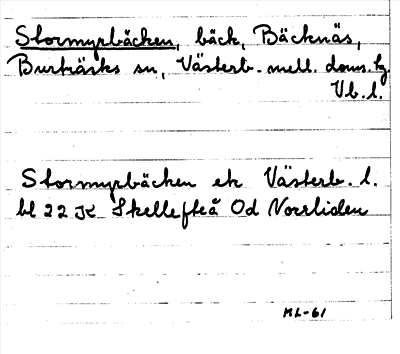 Stormyrbäcken, bäck, Bäcknäs,
Burträsks sn, Västerb. mell. doms.
Vb. l.
Stormyrbäcken ek Västerb. l.
bl 22 JK Skellefteå Od Norrliden
ML-61